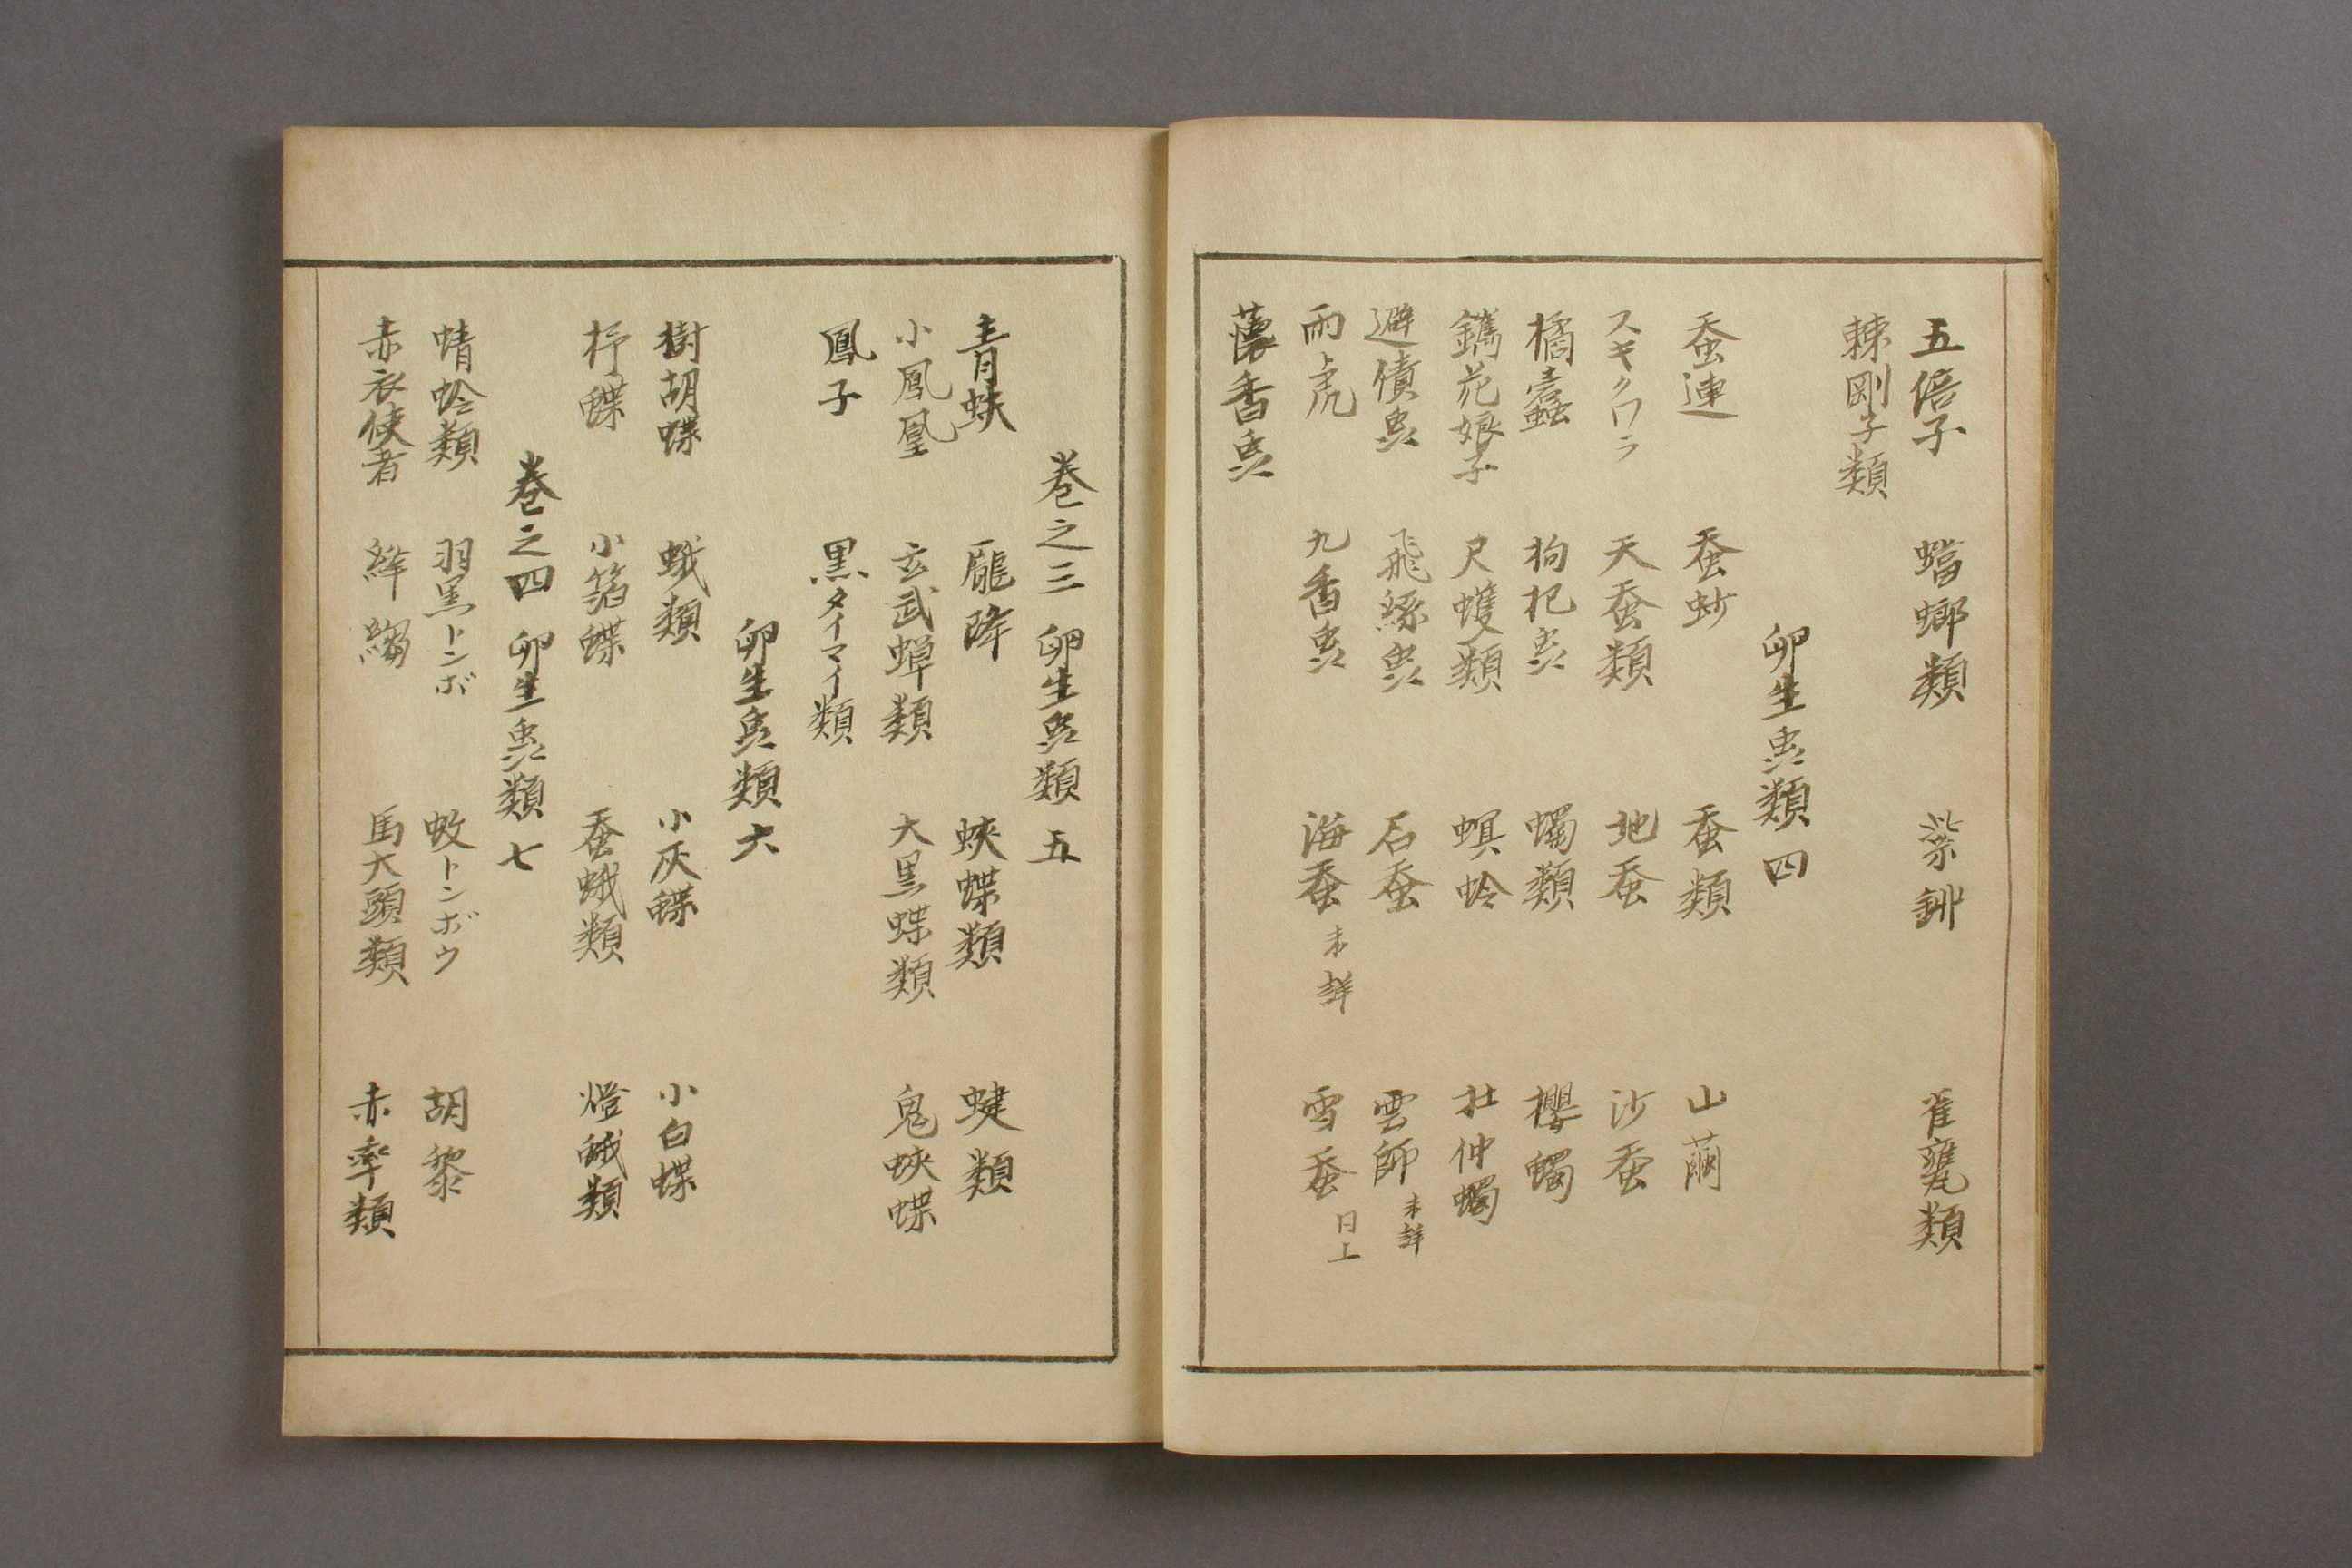 五倍子 蟷螂類 紫鉚 雀甕類
棘剛子類
卵生虫類 四
蚕連 蚕蚋 蚕類 山繭
スキクワラ 天蚕類 地蚕 沙蚕
橘蠹 枸杞虫 蠋類 櫻蠋
鐫花娘子 尺蠖類 螟蛉 杜仲蠋
避債虫 飛絲虫 石蚕 雲師 未詳
雨虎 九香虫 海蚕 未詳 雪蚕 日上
蘹香虫
巻之三 卵生虫類 五
青蚨 龐降 蛺蝶類 蜨類
小鳳凰 玄武蟬類 大黒蝶類 鬼蛺蝶
鳳子 黒タイマイ類
卵生虫類 六
樹胡蝶 蛾類 小灰蝶 小白蝶
杼蝶 小箔蝶 蚕蛾類 燈蛾類
巻之四 卵生虫類 七
蜻蛉類 羽黒トンボ 蚊トンボウ 胡黎
赤衣使者 絳縐 馬大頭類 赤卒類